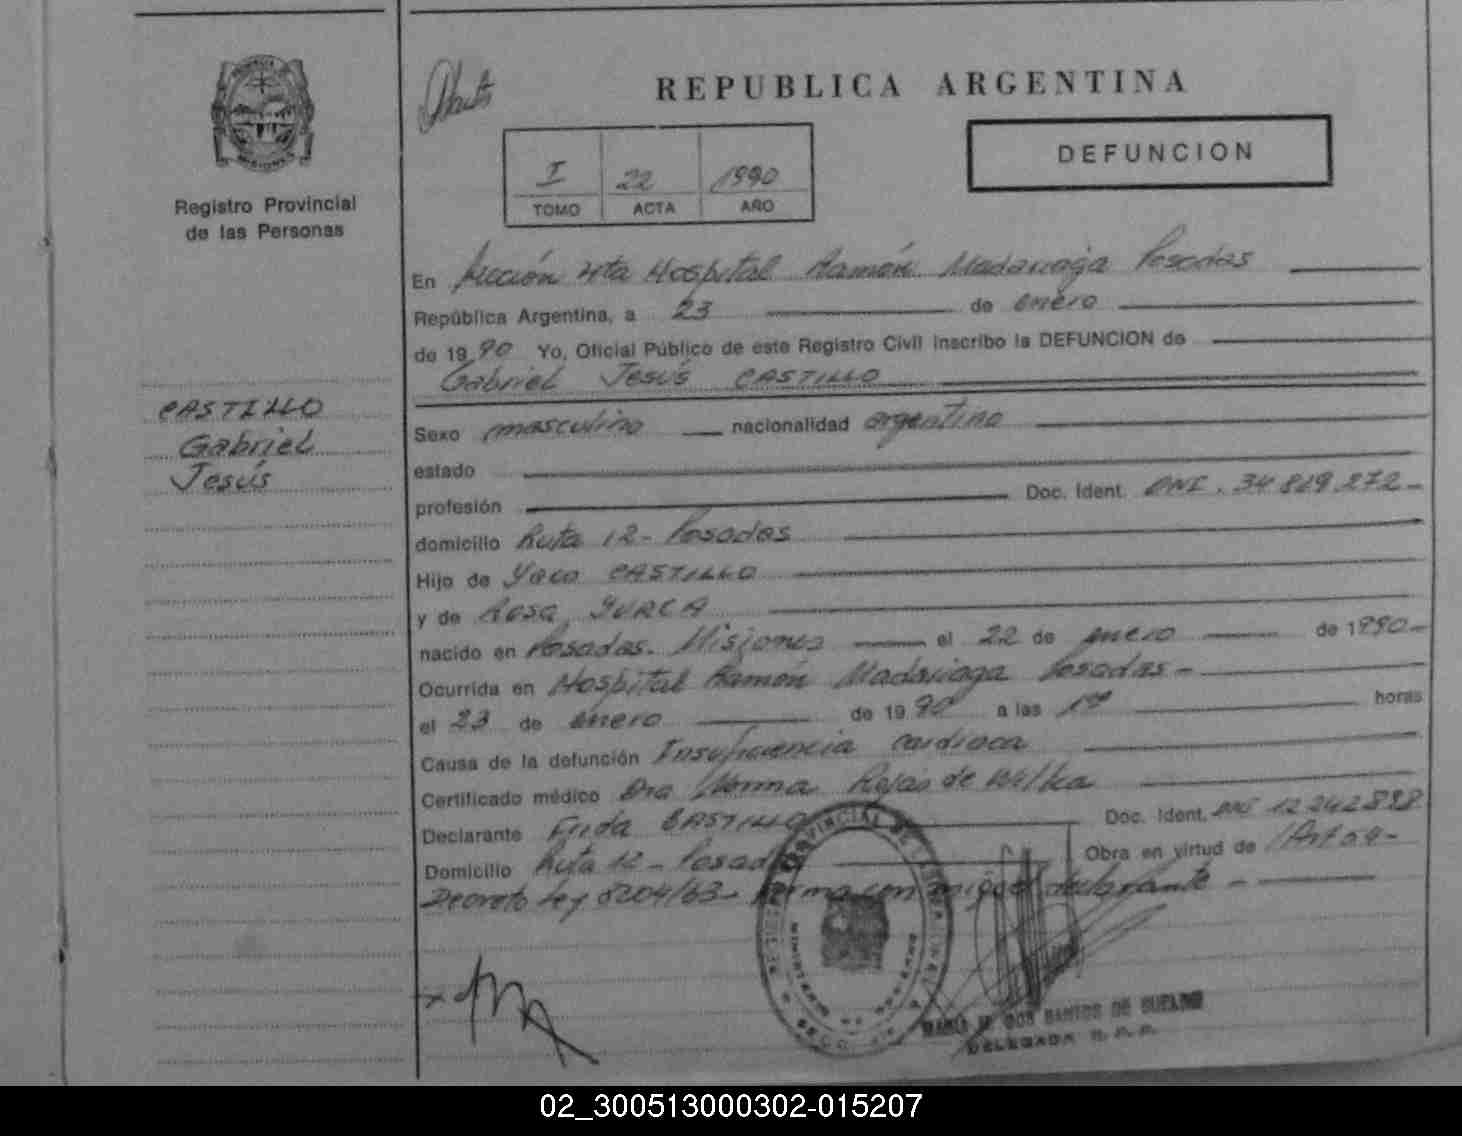 REPUBLICA ARGENTINA
DEFUNCION
I 22 1990
TOMO ACTA AÑO
Registro Provincial
de las Personas
En Sección 4ta Hospital Ramón Madariaga Posadas
República Argentina, a 23 de enero
de 1990 Yo, Oficial Público de este Registro Civil inscribo la DEFUNCION de
Gabriel Jesús CASTILLO
CASTILLO
Gabriel
Jesús
Sexo masculino nacionalidad argentino
estado
profesión Doc. Ident. DNI. 34.819.272-
domicilio Ruta 12- Posadas
Hijo de Yaco CASTILLO
y de Rosa YURCA
nacido en Posadas. Misiones el 22 de enero de 1990-
Ocurrida en Hospital Ramón Madariaga Posadas-
el 23 de enero de 1990 a las horas
Causa de la defunción Insuficiencia cardíaca
Certificado médico Dra Norma Rojas de
Declarante Frida CASTILLO Doc. Ident. DNI 12.242.898
Domicilio Ruta 12- Posadas Obra en virtud de
Decreto Ley 8204/63- Firma con migo el declarante -
MARIA DOS SANTOS DE
DELEGADA R. P. P.
02_300513000302-015207